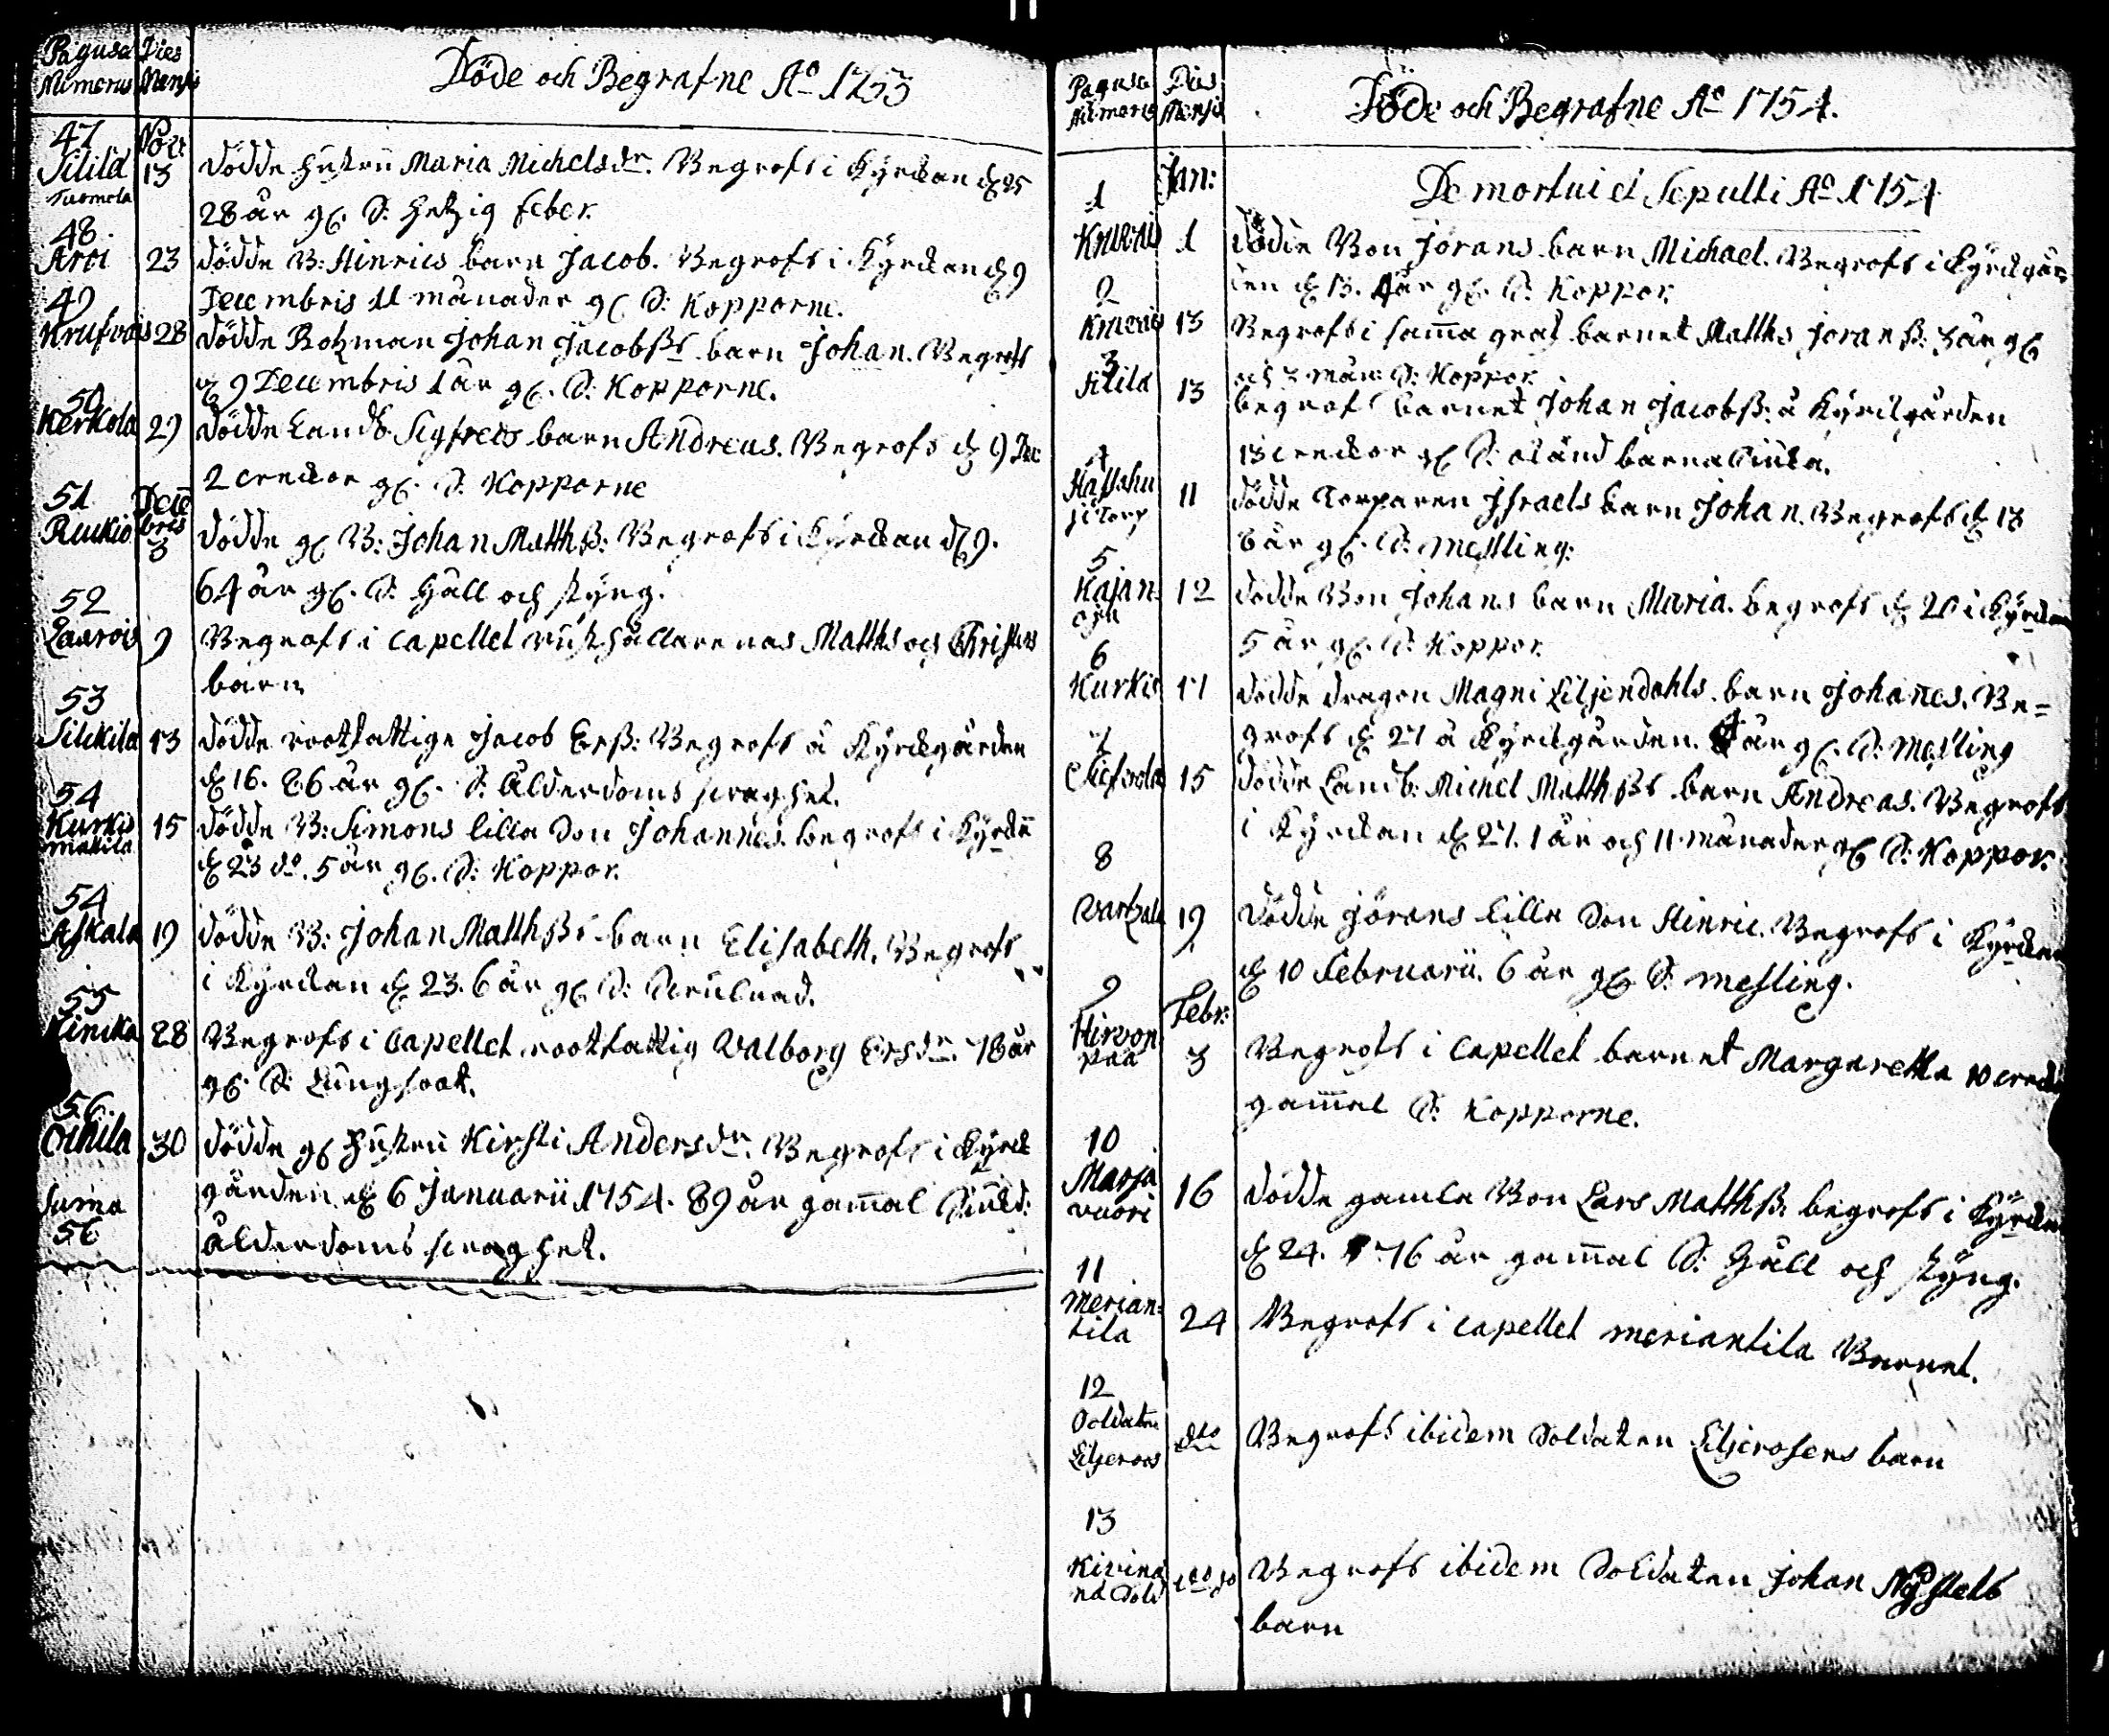 Pagus et Dies
Numerus Mensis
Döde och Begrafne Ao 1753
47 Nov:
Silild 13 dödde hustru Maria Michelsdr. Begrofs i Kyrckan d 25
Tuomola
28 år gl. S: hetzig feber.
48.
Aroi 23 dödde B: Hinrics barn Jacob. Begrofs i Kyrckan d 9
Decembris 11 månader gl S: Kopporne.
49
Krufvois 28 dödde Rotman Johan Jacobßs barn Johan. Begrofs
d 9 Decembris 1 år gl. S: Kopporne.
50
Kerkola 29 dödde Landb. Sigfreds barn Andreas. Begrofs d 9 Dec
2 weckor gl. S: Kopporne
51 Decembris
Ruikio 3 dödde gl B: Johan Matthß: Begrofs i Kyrckan d 9.
64 år gl. S: håll och styng.
52
Laurois 9 Begrofs i Capellet rusthållarenas Matths och Christers
barn
53
Silkila 13 dödde rootfattige Jacob Erß: Begrofs å Kyrckgården
d 16. 86 år gl. S: Ålderdoms swaghet.
54
Kurkis 15 dödde B: Simons lilla Son Johannes. begrofs i Kyrckn
makila
d 23 do. 5 år gl. S: Koppor.
54
Askala 19 dödde B: Johan Matthßs barn Elisabeth. Begrofs
i Kyrckan d 23. 6 år gl. S:
55
Kinika 28 Begrofs i Capellet rootfattig Valborg Ersdr. 78 år
gl. S: Lungsoot.
56.
30 dödde gl hustru Kirsti Andersdr. Begrofs i Kyrck
gården d 6 Januarii 1754. 89 år gamal
ålderdoms swaghet.
Suma
56
Pagus et Dies
Numerus Mensis
Döde och Begrafne Ao 1754.
De mortui et Sepulti Ao 1754
1 Jan:
1 dödde Bon Jörans barn Michael. Begrofs i Kyrckgår
den d 13. 4 år gl. S: Koppor.
2
13 Begrofs i sama graf barnet Matths Joranß: 3 år gl
och 3 mån: S: Koppor.
3
Silild 13 begrofs barnet Johan Jacobß: å Kyrckgården
13 weckor gl S: okänd barnasiuka.
4
11 dödde Torparen Israels barn Johan. Begrofs d 18
6 år gl. S: Messling:
5
Kajan 12 dödde Bon Johans barn Maria. begrofs d 20 i Kyrckan
oja
5 år gl. S: Koppor.
6
Kurkis 17 dödde dragon Magni Liljendahls barn Johanes. Be=
grofs d 27 å Kyrckgården. 4 år gl. S: Mesling
7
15 dödde Landb: Michel Matthßs barn Andreas. Begrofs
i Kyrckan d 27. 1 år och 11 månader gl S: Koppor.
8
Vartzala 19 dödde Jörans lille Son Hinric. Begrofs i Kyrckan
d 10 Februarii. 6 år gl S: mesling.
9 Febr:
Hirvon 3 Begrofs i Capellet barnet Margaretha 10 weck
päa
gamal S: Kopporne.
10
Marja 16 dödde gamla Bon Lars Matthß. begrofs i Kyrckan
vuori
d 24. 76 år gamal S: håll och styng.
11
Merian= 24 Begrofs i Capellet meriantila Barnet.
tila
12
Soldaten dto Begrofs ibidem Soldaten Liljerosens barn
Liljeroos
13
Begrofs ibidem Soldaten Johan Nystedts
barn